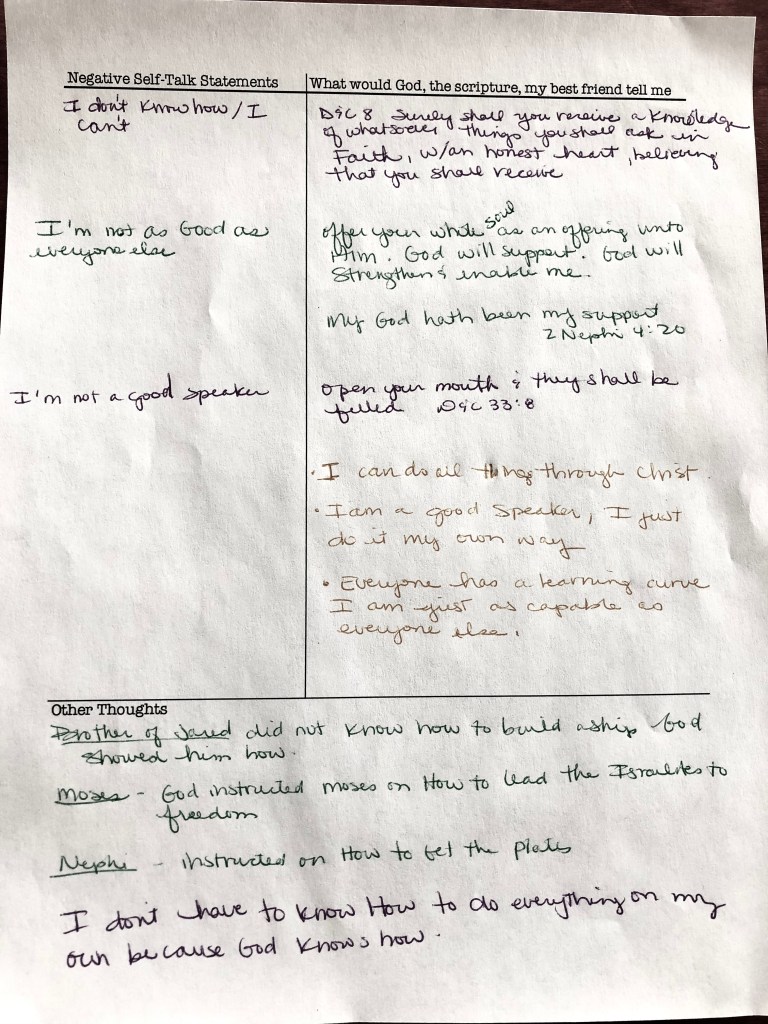 Negative Self-Talk Statements
What would God, the scripture, my best friend tell me
I don't know how / I
can't
D&C 8 Surely shall you receive a knowledge
of whatsoever things you shall ask in
Faith, w/an honest heart, believing
that you shall receive
I'm not as Good as
everyone else
offer your whole soul as an offering unto
Him. God will support. God will
Strengthen & enable me.
My God hath been my support
2 Nephi 4:20
I'm not a good speaker
open your mouth & they shall be
filled D&C 33:8
• I can do all things through Christ.
• I am a good speaker, I just
do it my own way
• Everyone has a learning curve
I am just as capable as
everyone else.
Other Thoughts
Brother of Jared did not know how to build a ship God
showed him how.
Moses - God instructed moses on How to lead the Israelites to
freedom
Nephi - instructed on How to Get the plates
I don't have to know How to do everything on my
own because God knows how.